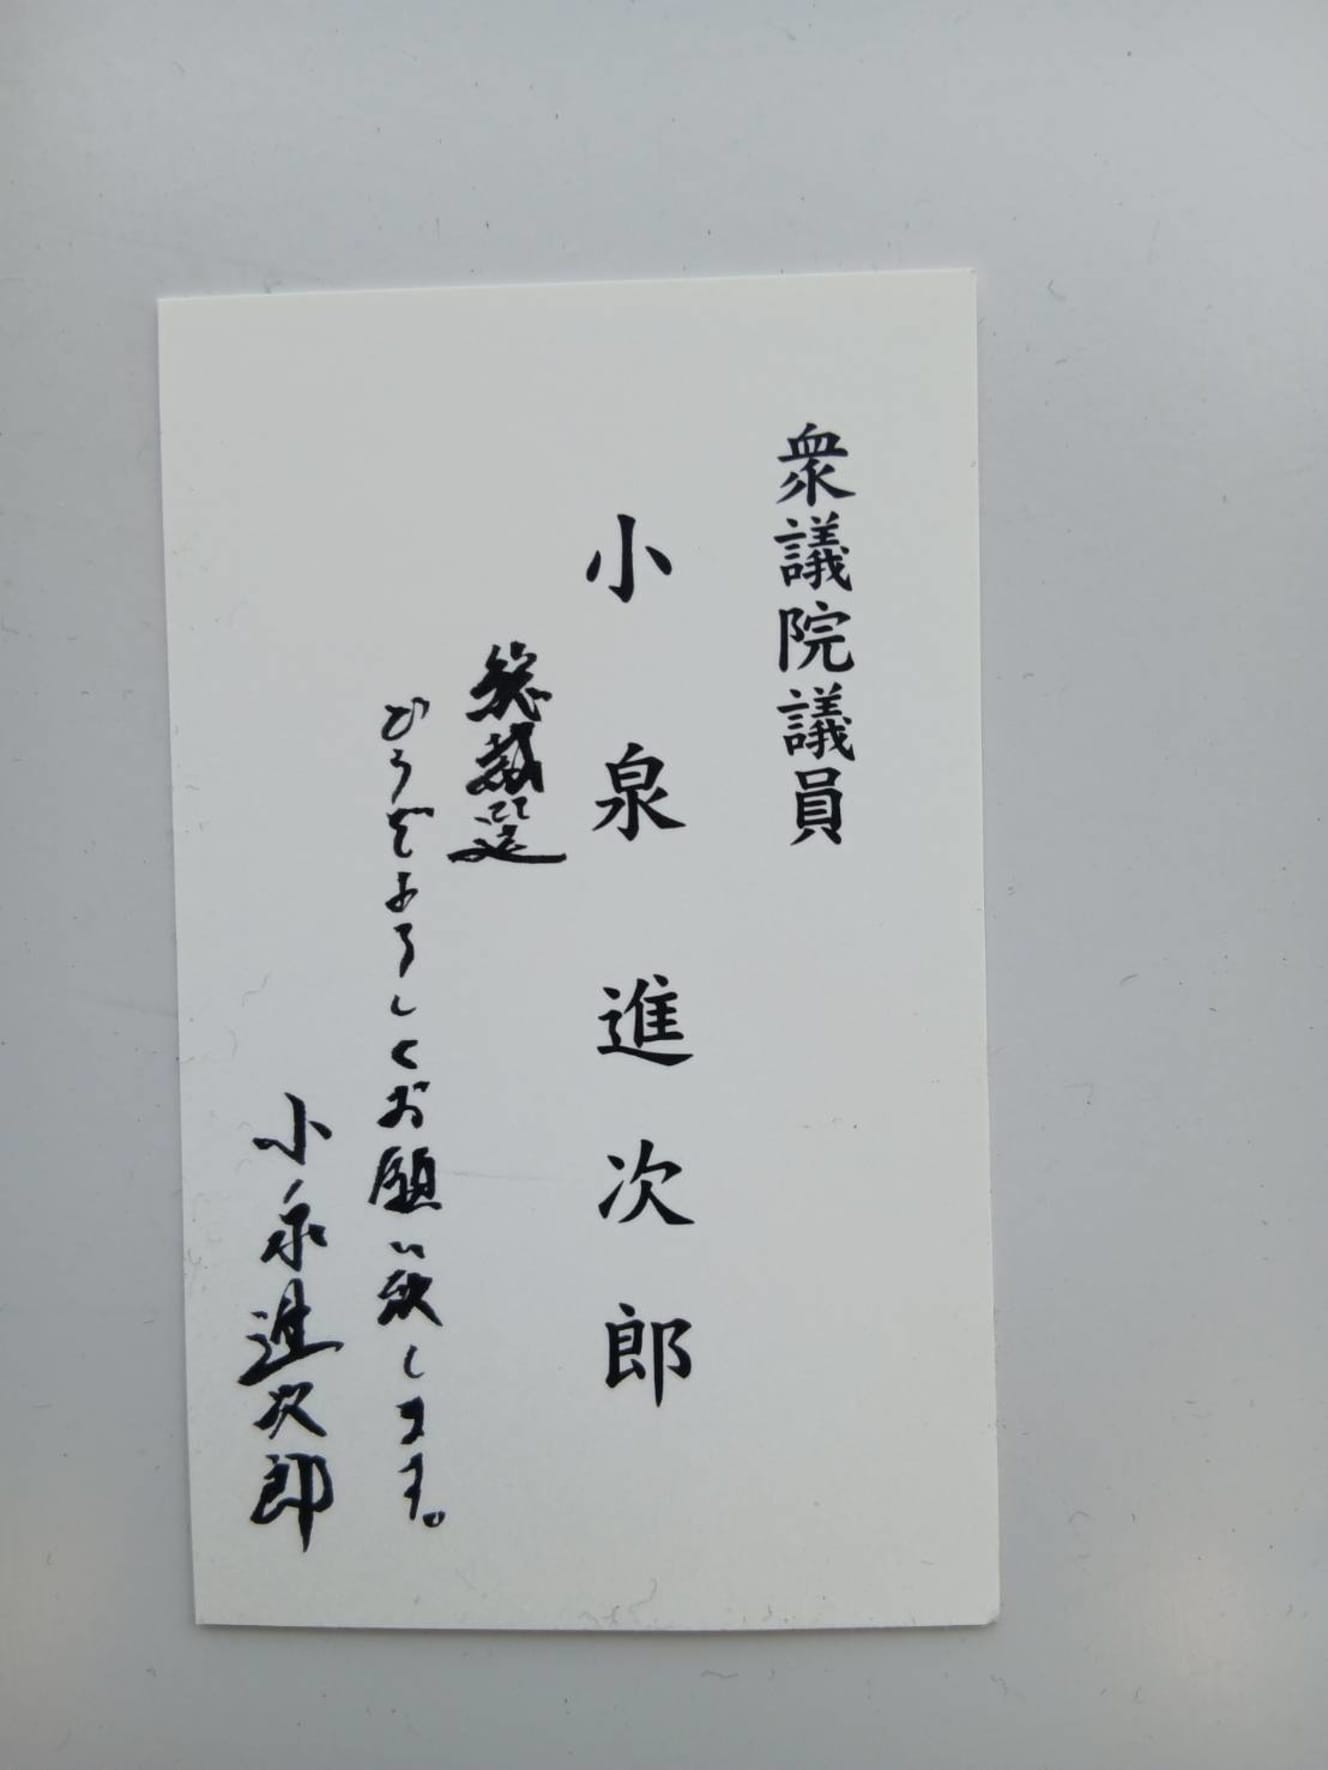 衆議院議員
小泉進次郎
総裁選
どうぞよろしくお願い致します。
小泉進次郎